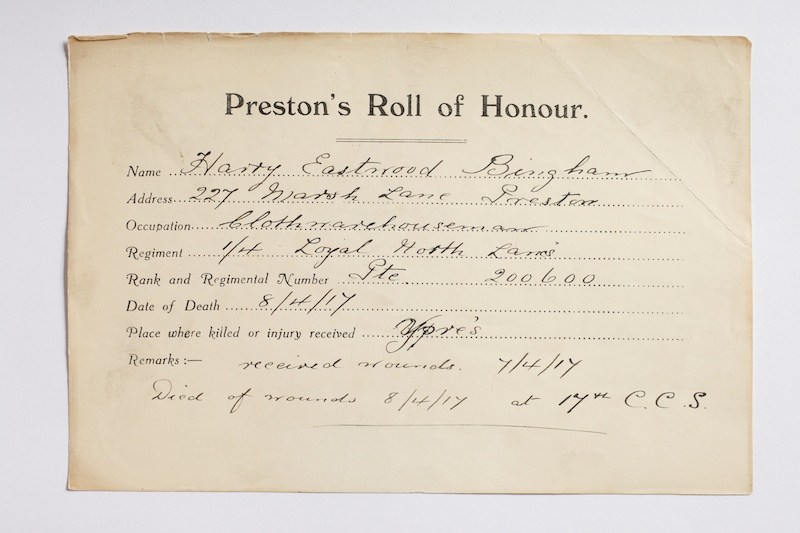 Preston's Roll of Honour.
Name Harry Eastwood Bingham
Address 227 Marsh Lane Preston
Occupation Clothwarehouseman
Regiment 1/4 Loyal North Lancs
Rank and Regimental Number Pte 200600
Date of Death 8/4/17
Place where killed or injury received Ypre's
Remarks :— received wounds. 7/4/17
Died of wounds 8/4/17 at 17th C.C.S.